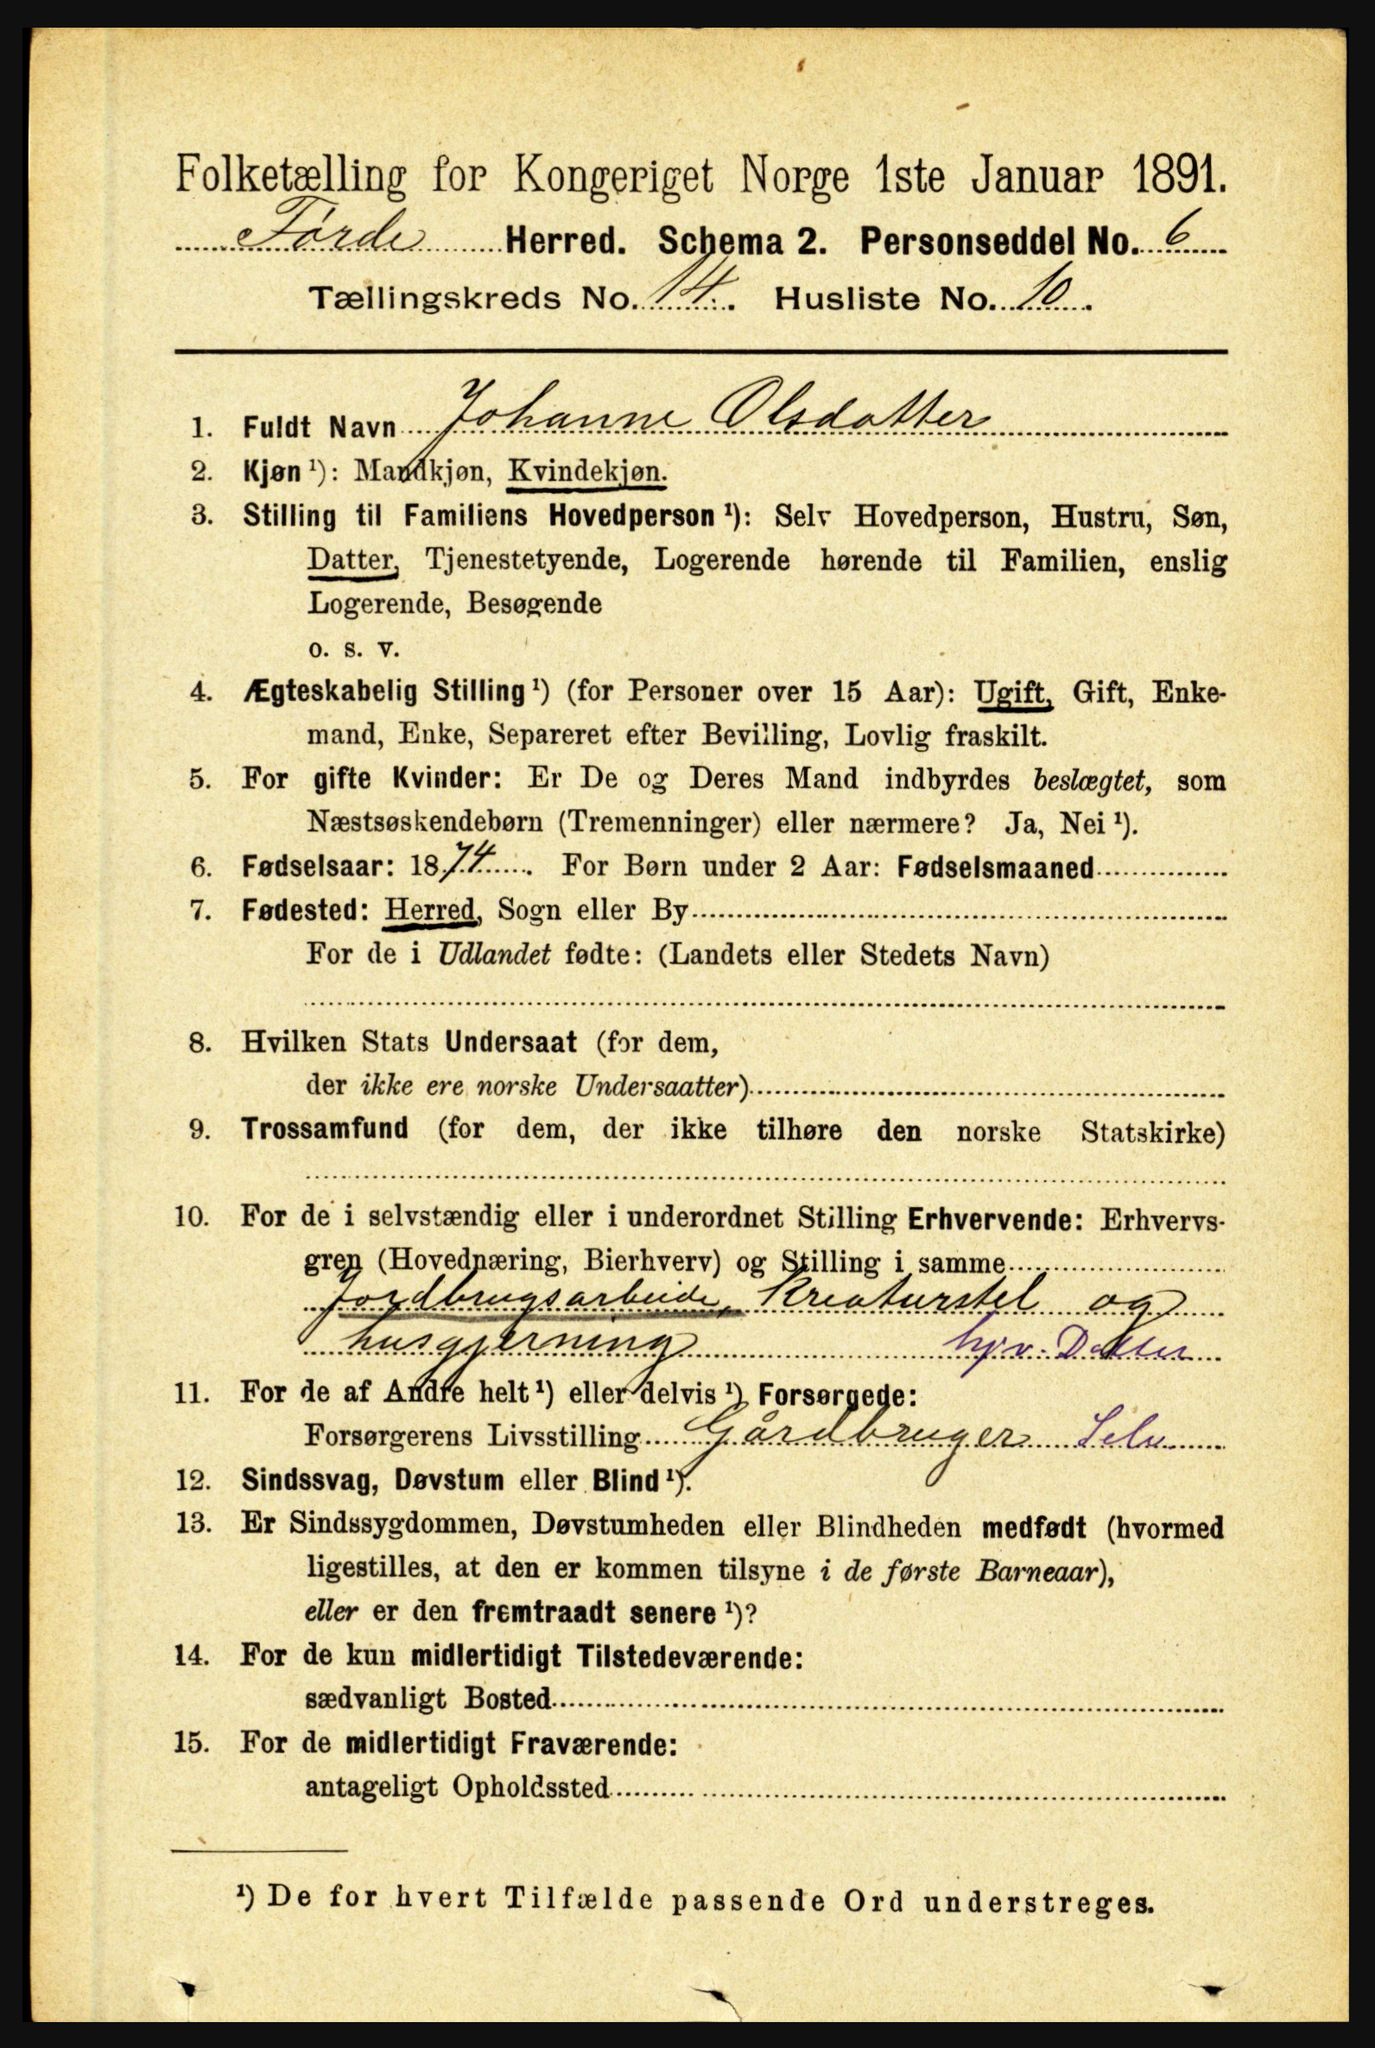 Folketælling for Kongeriget Norge 1ste Januar 1891.
Førde Herred. Schema 2. Personseddel No. 6
Tællingskreds No. 14. Husliste No. 10.
1. Fuldt Navn Johanne Olsdatter
2. Kjøn ¹): Mandkjøn, Kvindekjøn.
3. Stilling til Familiens Hovedperson ¹): Selv Hovedperson, Hustru, Søn,
Datter, Tjenestetyende, Logerende hørende til Familien, enslig
Logerende, Besøgende
o. s. v.
4. Ægteskabelig Stilling ¹) (for Personer over 15 Aar): Ugift, Gift, Enke-
mand, Enke, Separeret efter Bevilling, Lovlig fraskilt.
5. For gifte Kvinder: Er De og Deres Mand indbyrdes beslægtet, som
Næstsøskendebørn (Tremenninger) eller nærmere? Ja, Nei ¹).
6. Fødselsaar: 1874. For Børn under 2 Aar: Fødselsmaaned
7. Fødested: Herred, Sogn eller By
For de i Udlandet fødte: (Landets eller Stedets Navn)
8. Hvilken Stats Undersaat (for dem,
der ikke ere norske Undersaatter)
9. Trossamfund (for dem, der ikke tilhøre den norske Statskirke)
10. For de i selvstændig eller i underordnet Stilling Erhvervende: Erhvervs-
gren (Hovednæring, Bierhverv) og Stilling i samme
Jordbrugsarbeide, Kreaturstel og
husgjerning hjv. Datter
11. For de af Andre helt ¹) eller delvis ¹) Forsørgede:
Forsørgerens Livsstilling Gårdbruger Selv
12. Sindssvag, Døvstum eller Blind ¹).
13. Er Sindssygdommen, Døvstumheden eller Blindheden medfødt (hvormed
ligestilles, at den er kommen tilsyne i de første Barneaar),
eller er den fremtraadt senere ¹)?
14. For de kun midlertidigt Tilstedeværende:
sædvanligt Bosted
15. For de midlertidigt Fraværende:
antageligt Opholdssted
¹) De for hvert Tilfælde passende Ord understreges.